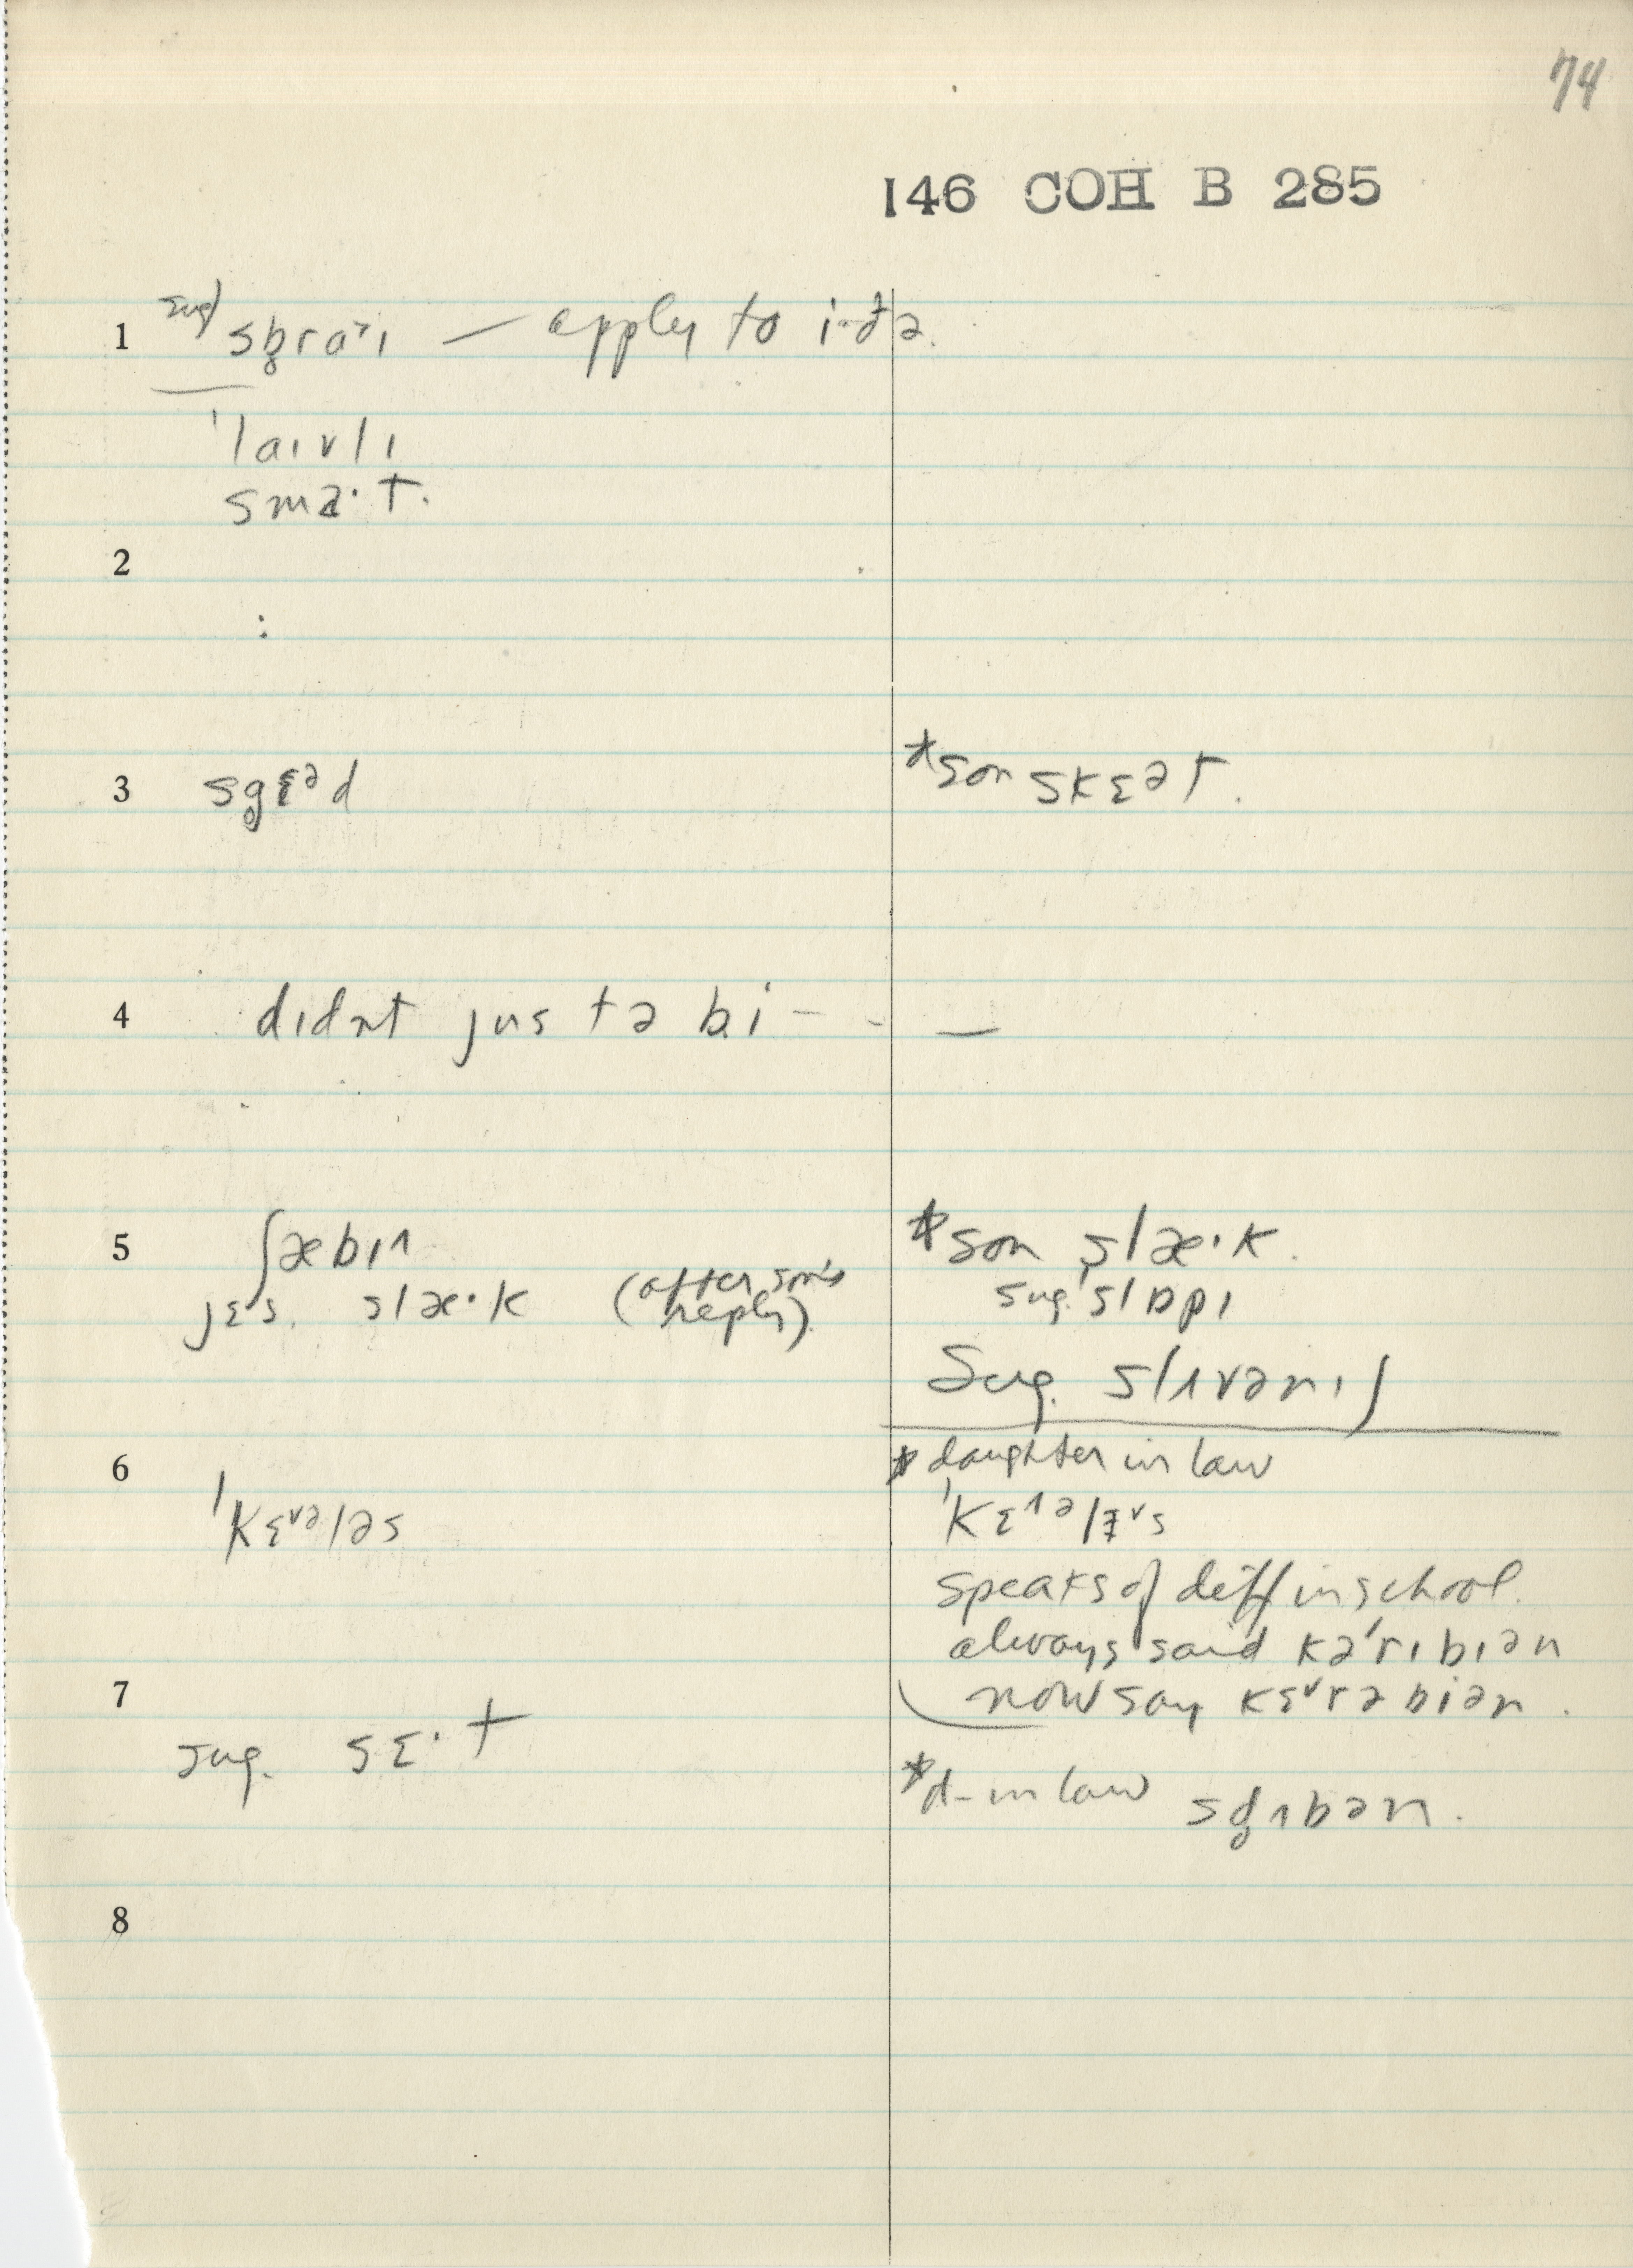 74
146 COH B 285
1 sug) sb̥raˑɪ — apply to i·ðə.
ˈlaɪvlɪ
smaˑt.
2
3 sg̥ɛəd *son skɛət.
4 dɪdnt jus tə bi - - —
5 ʃæbɪ *son slæˑk.
jɛs. slæˑk (after son's reply) sug. ˈslɒpɪ
Sug. slɪvənɪʃ
6 * daughter in law
ˈkɛ˅ələs ˈkɛ˄əl s
speaks of diff in school.
always said kəˈrɪbɪən
7 now say kɛ˅rəbiən.
sug. sɛˑt
*d-in law sd̥ʌbən.
8